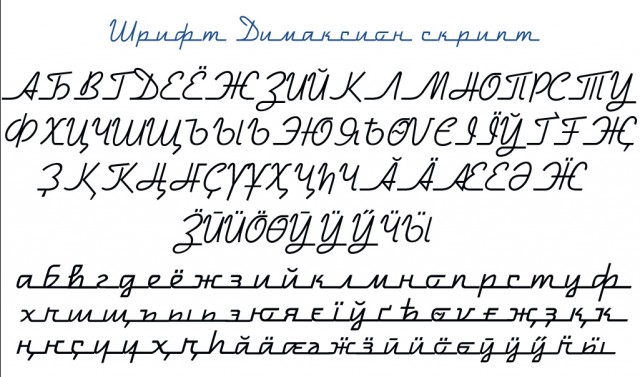 Шрифт Димаксион скрипт
АБВГДЕЁЖЗИЙКЛМНОПРСТУ
ФХЦЧШЩЪЫЬЭЮЯѢѲѴЄІЇЎҐҒҖ
ҘҚҠҢҤҪҮҰҲҶҺЧӐӒӔЕӘӜ
ӞӢӤӦӨӮӰӲӴӸ
абвгдеёжзийклмнопрстуф
хчшщъыьэюяєїўґѣѳѵғҗҙқҡ
ңҥҫүұҳҷһӑӓӕәӝӟӣӥӧөӯӱӳӵӹ